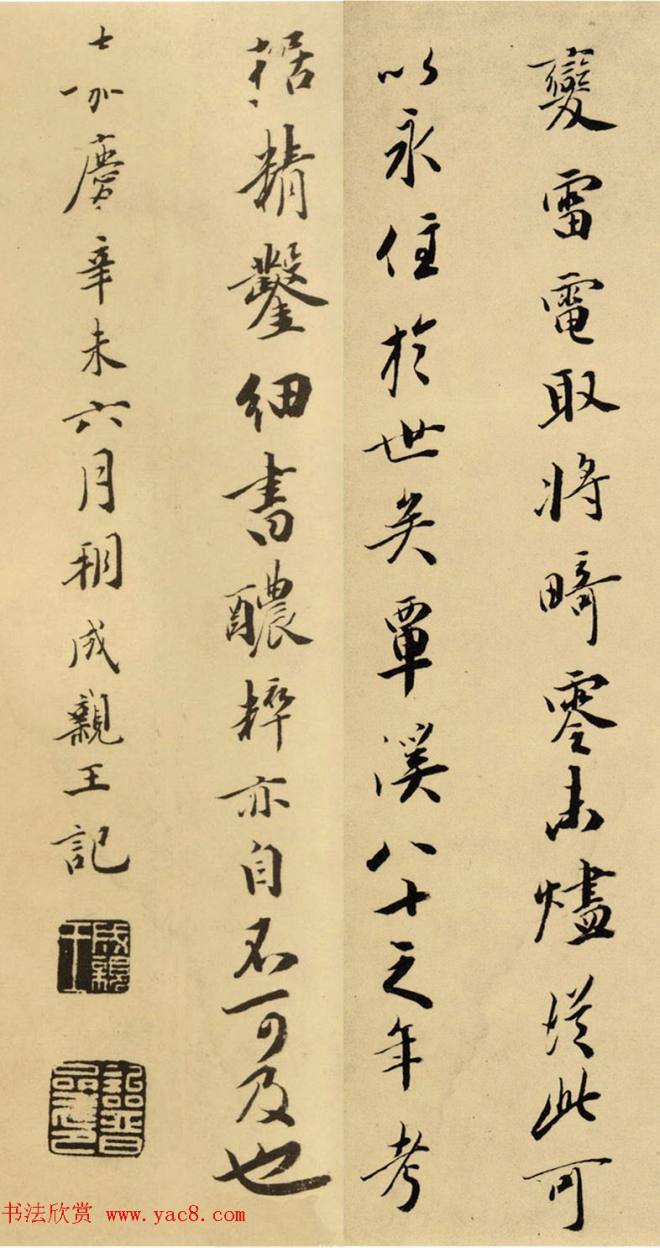 變雷電取將畸零未燼從此可
以永住於世矣覃溪八十之年考
据精鑿細書醲粹亦自不可及也
嘉慶辛未六月朔成親王記
成親王
詒晉齋印
书法欣赏 www.yac8.com